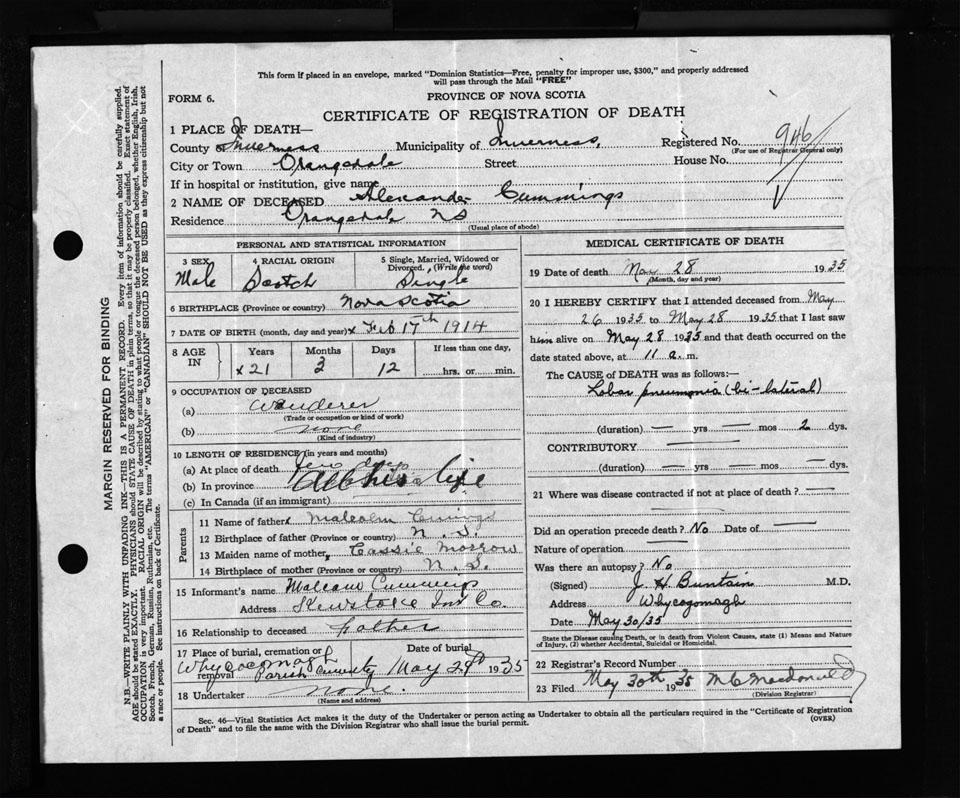 This form if placed in an envelope, marked "Dominion Statistics—Free, penalty for improper use, $300," and properly addressed
will pass through the Mail "FREE"
FORM 6.
PROVINCE OF NOVA SCOTIA
CERTIFICATE OF REGISTRATION OF DEATH
1 PLACE OF DEATH—
County Inverness Municipality of Inverness, Registered No. 946
(For use of Registrar General only)
City or Town Orangedale Street House No.
If in hospital or institution, give name
2 NAME OF DECEASED Alexander Cummings
Residence Orangedale NS
(Usual place of abode)
PERSONAL AND STATISTICAL INFORMATION
3 SEX 4 RACIAL ORIGIN 5 Single, Married, Widowed or
Divorced, (Write the word)
Male Scotch Single
6 BIRTHPLACE (Province or country) Nova Scotia
7 DATE OF BIRTH (month, day and year) x Feb 17th 1914
8 AGE IN Years Months Days If less than one day,
x 21 3 12 hrs. or min.
9 OCCUPATION OF DECEASED
(a) Wanderer
(Trade or occupation or kind of work)
(b) none
(Kind of industry)
10 LENGTH OF RESIDENCE (in years and months)
(a) At place of death
(b) In province All his life
(c) In Canada (if an immigrant)
Parents
11 Name of father Malcolm Cumings
12 Birthplace of father (Province or country) N. S.
13 Maiden name of mother Cassie Morrow
14 Birthplace of mother (Province or country) N. S.
15 Informant's name Cummings
Address Skewstoke Inv Co.
16 Relationship to deceased Father
17 Place of burial, cremation or Date of burial
removal Whycocomagh Parish May 29th 1935
18 Undertaker None.
(Name and address)
MEDICAL CERTIFICATE OF DEATH
19 Date of death May 28 1935
(Month, day and year)
20 I HEREBY CERTIFY that I attended deceased from May
26 1935 to May 28 1935 that I last saw
him alive on May 28 1935 and that death occurred on the
date stated above, at 11 a. m.
The CAUSE of DEATH was as follows:—
Lobar pneumonia (bi-lateral)
(duration) — yrs — mos 2 dys.
CONTRIBUTORY —
(duration) — yrs — mos — dys.
21 Where was disease contracted if not at place of death? —
Did an operation precede death? No Date of —
Nature of operation —
Was there an autopsy? No
(Signed) J. H. Buntain M.D.
Address Whycogomagh
Date May 30/35
State the Disease causing Death, or in death from Violent Causes, state (1) Means and Nature
of Injury, (2) whether Accidental, Suicidal or Homicidal.
22 Registrar's Record Number
23 Filed May 30th 1935 M C Macdonald
(Division Registrar)
Sec. 46—Vital Statistics Act makes it the duty of the Undertaker or person acting as Undertaker to obtain all the particulars required in the "Certificate of Registration
of Death" and to file the same with the Division Registrar who shall issue the burial permit.
(OVER)
MARGIN RESERVED FOR BINDING
N.B.—WRITE PLAINLY WITH UNFADING INK—THIS IS A PERMANENT RECORD. Every item of information should be carefully supplied.
AGE should be stated EXACTLY. PHYSICIANS should STATE CAUSE OF DEATH in plain terms, so that it may be properly classified. Exact statement of
OCCUPATION is very important. RACIAL ORIGIN will be described by stating to what people or tongue the deceased person belonged, whether English, Irish,
Scotch, French, German, Russian, Ruthenian, etc. The terms "AMERICAN" or "CANADIAN" SHOULD NOT BE USED as they express citizenship but not
a race or people. See instructions on back of Certificate.